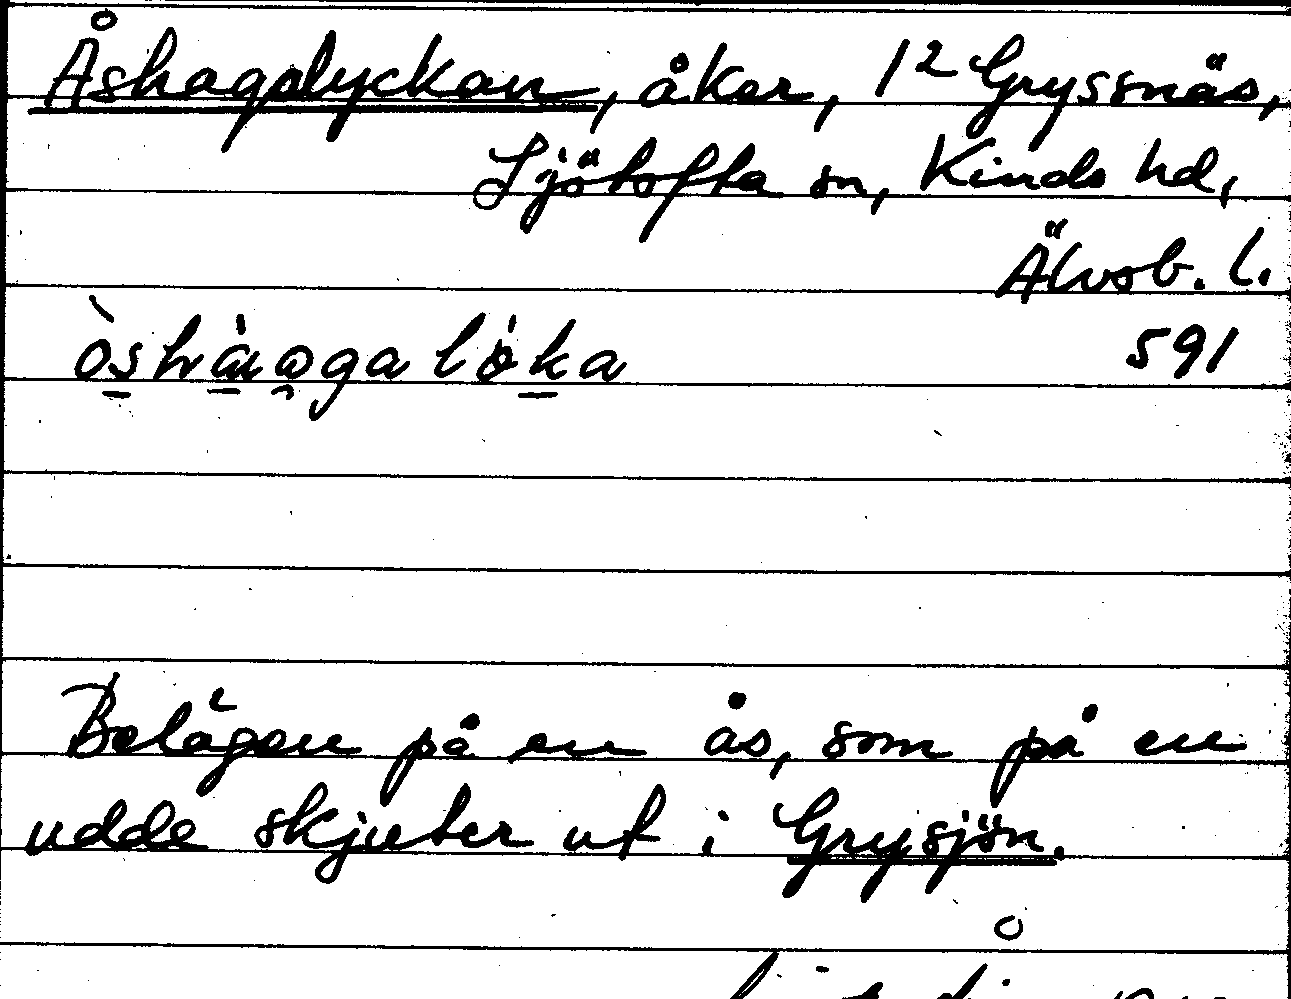 Åshagalyckan, åker, 1² Gryssnäs,
Sjötofta sn, Kinds hd,
Älvsb. l.
591
Belägen på en ås, som på en
udde skjuter ut i Grysjön.